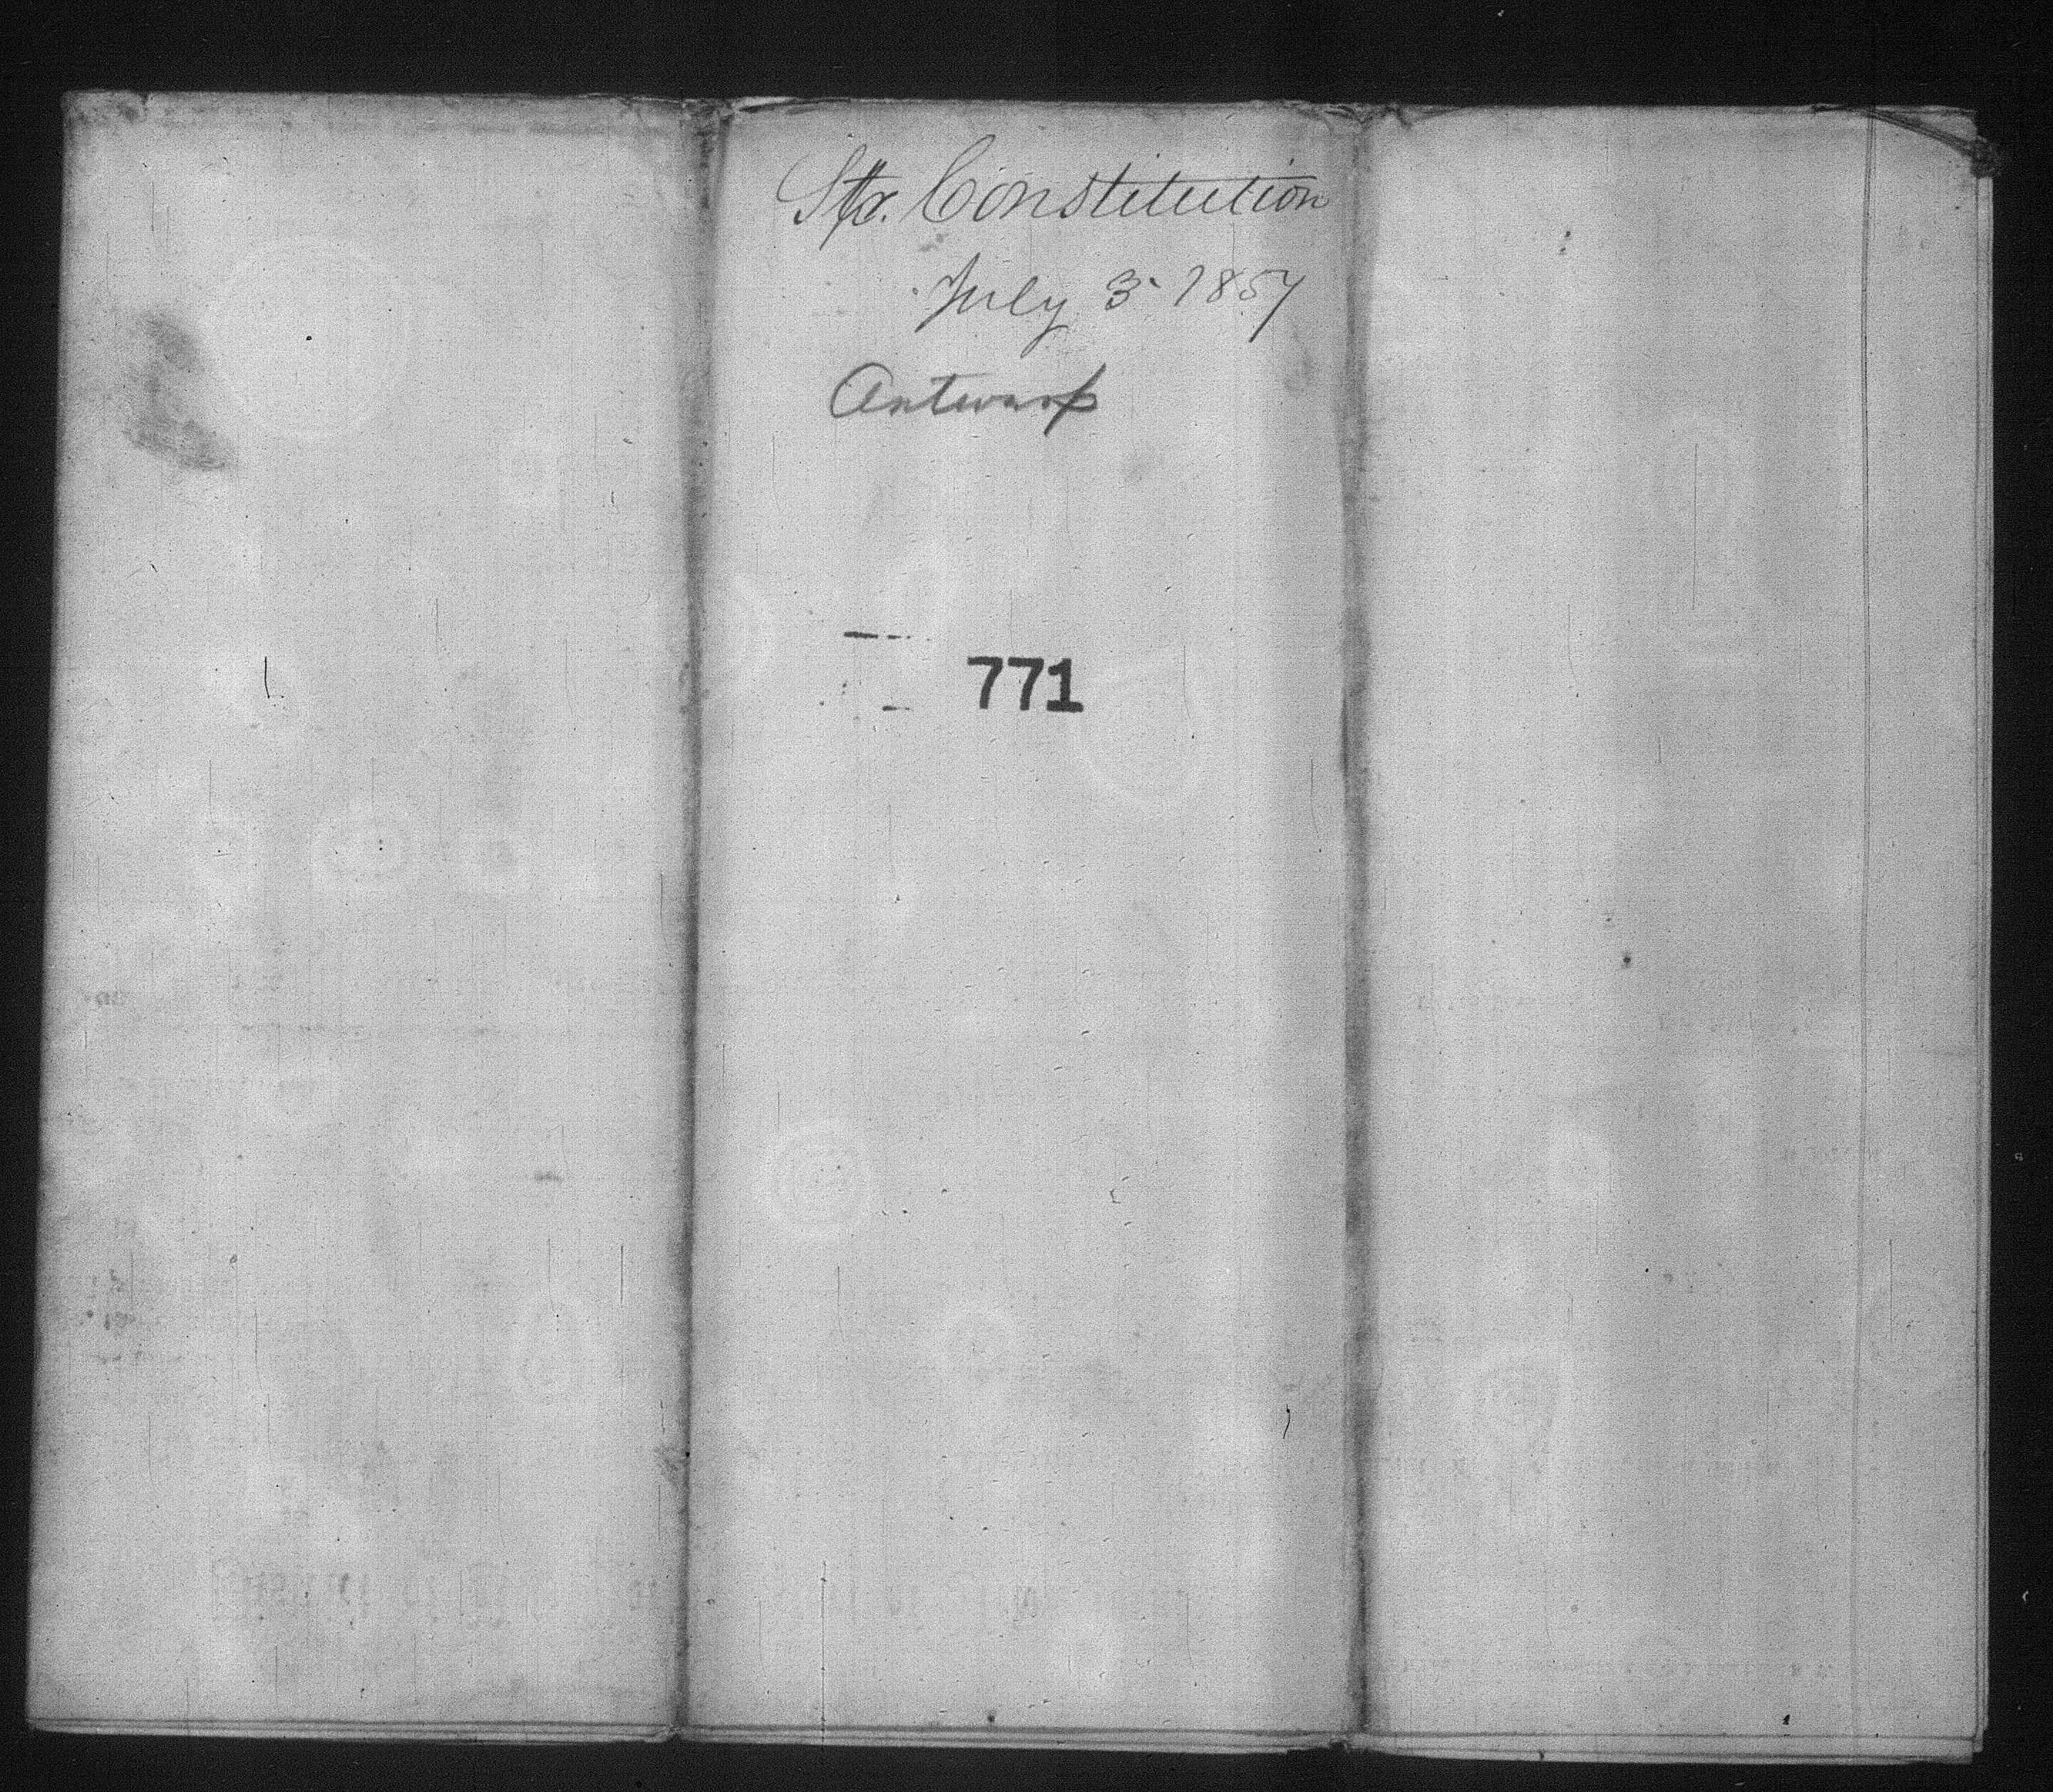 Str. Constitution
July 3 1857
Antwerp
771